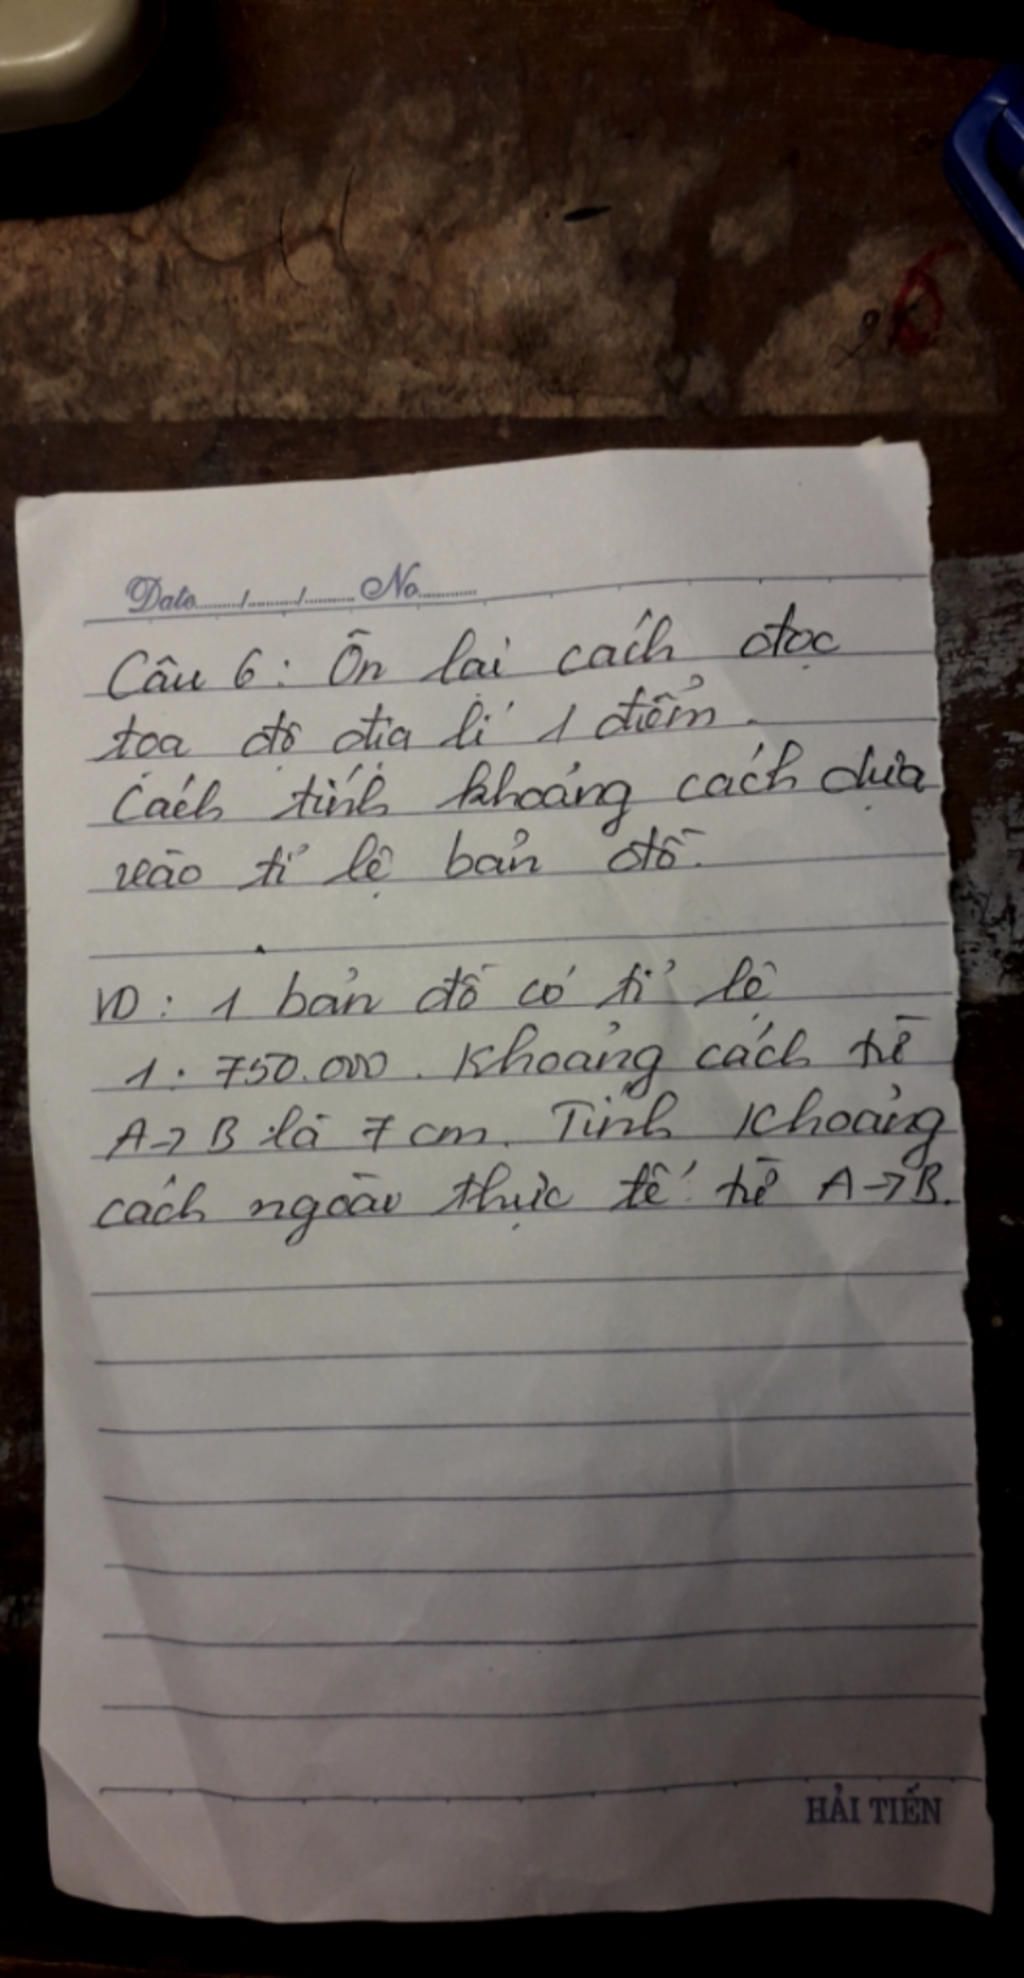 Date......../......../........ No..........
Câu 6: Ôn lại cách đọc
tọa độ địa lí 1 điểm.
Cách tính khoảng cách dựa
vào tỉ lệ bản đồ.
VD: 1 bản đồ có tỉ lệ
1: 750.000. Khoảng cách từ
A→B là 7 cm. Tính khoảng
cách ngoài thực tế từ A→B.
HẢI TIẾN